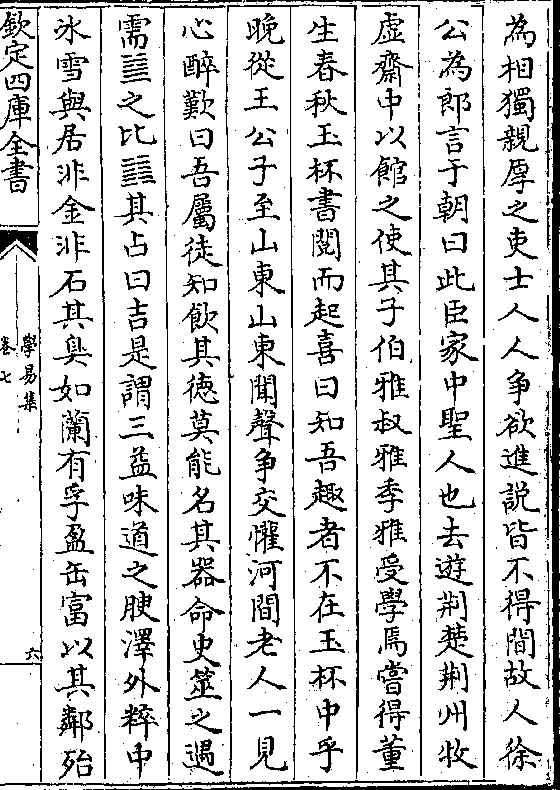 為相獨親厚之吏士人人争欲進説皆不得間故人徐
公為郎言于朝曰此臣家中聖人也去遊荆楚荆州牧
虚齋中以館之使其子伯雅叔雅季雅受學焉嘗得董
生春秋玉杯書閲而起喜曰知吾趣者不在玉杯中乎
晚從王公子至山東山東聞聲争交懽河間老人一見
心醉歎曰吾屬徒知飲其徳莫能名其器命史筮之遇
需䷄之比䷇其占曰吉是謂三益味道之腴澤外粹中
氷雪與居非金非石其臭如蘭有孚盈缶富以其鄰殆
欽定四庫全書
學易集
卷七
六